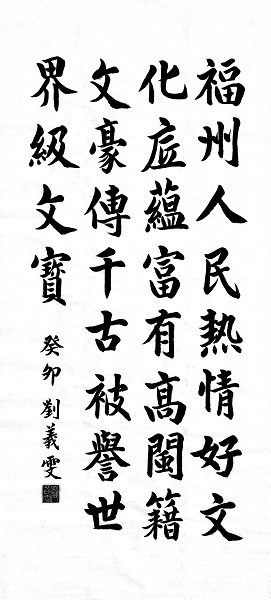 福州人民熱情好文
化底蘊富有高閩籍
文豪傳千古被譽世
界級文寶
癸卯劉義雯